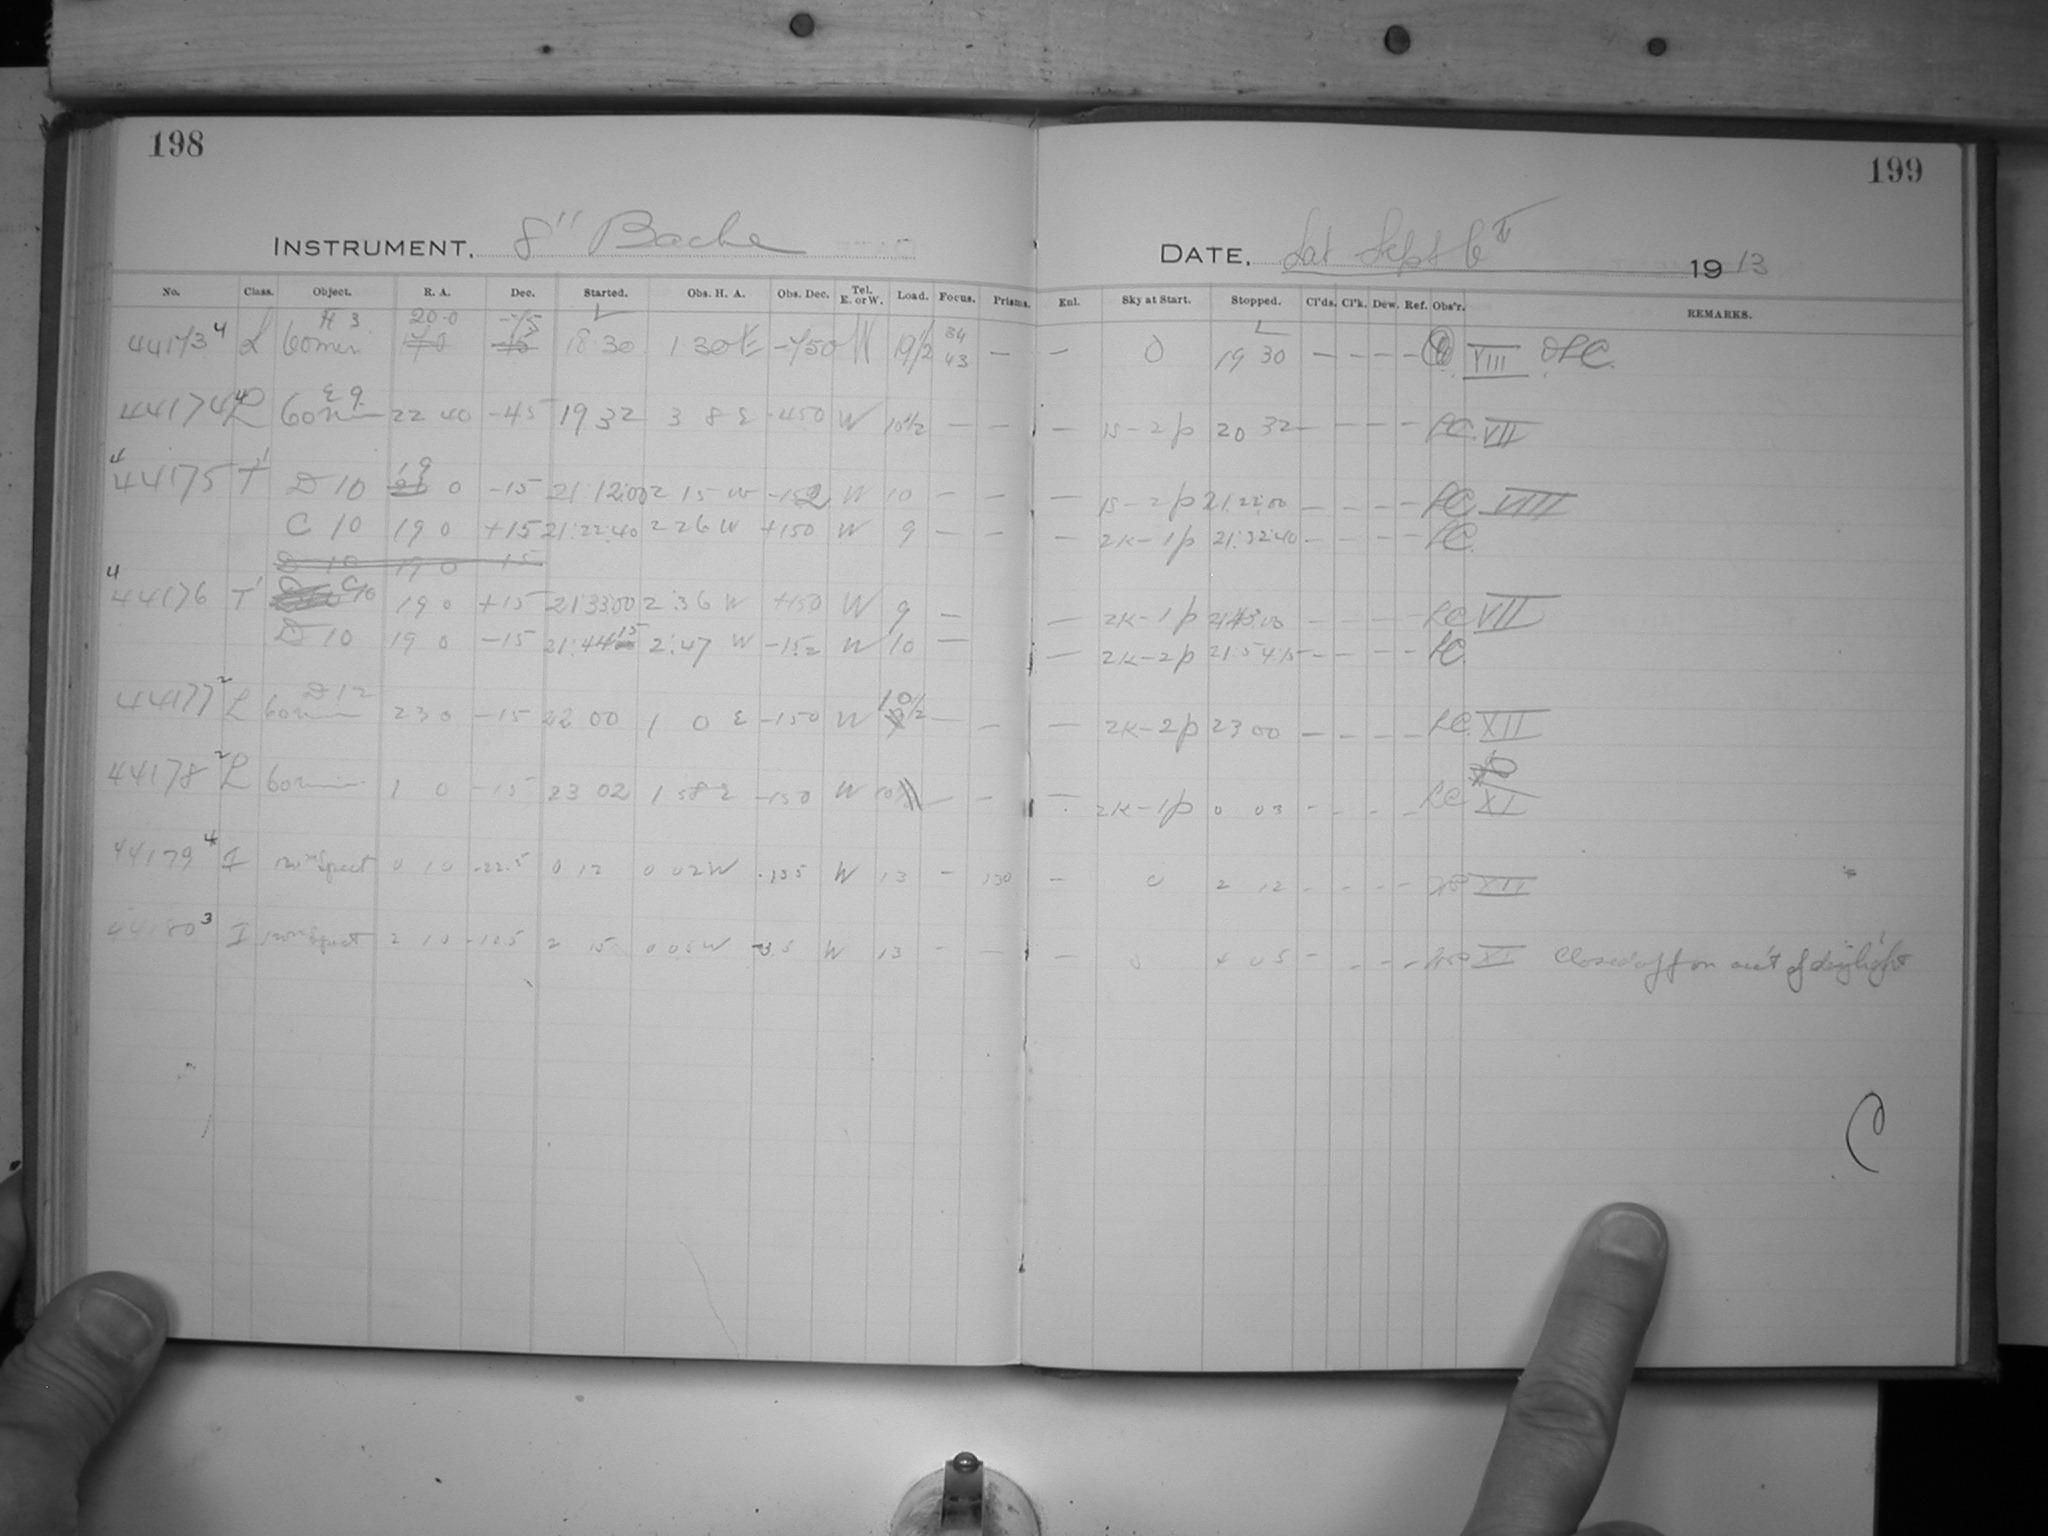 198
199
INSTRUMENT. 8" Bache
DATE. Sat Sept 6th 1913
No. Class. Object. R. A. Dec. Started. Obs. H. A. Obs. Dec. Tel. E. or W. Load. Focus. Prisms. Enl. Sky at Start. Stopped. Cl'ds. Cl'k. Dew. Ref. Obs'r. REMARKS.
H 3 20.0 -75 34
44173 4 L 60min 18 30 1 30 E -750 W 19/2 43 — — 0 19 30 — — — — VIII
E 9
44174 4 L 60m 22 40 -45 19 32 3 8 E -450 W 10 1/2 — — — 1s-2p 20 32 — — — — LC VII
19
44175 4 T' D 10 0 -15 21:12:00 2 15 W -152 W 10 — — — 1s-2p 21:22:00 — — — — LC VIII
C 10 19 0 +15 21:22:40 2 26 W +150 W 9 — — — 2K-1p 21:32:40 — — — — LC
D 10 19 0 -15
44176 4 T' C10 19 0 +15 21:33:00 2:36 W +150 W 9 — — 2K-1p 21:43:00 — — — — LC VII
D 10 19 0 -15 21:44:15 2:47 W -152 W 10 — — 2K-2p 21:54:15 — — — — LC
D 12
44177 2 L 60m 23 0 -15 22 00 1 0 E -150 W 10/2 — — — 2K-2p 23 00 — — — — LC XII
44178 2 L 60m 1 0 -15 23 02 1 58 E -150 W 10 — — — 2K-1p 0 03 — — — — LC XI
44179 4 I 120m Spect 0 10 -22.5 0 12 0 02 W -135 W 13 — 130 — 0 2 12 — — — — XII
44180 3 I 120m Spect 2 10 -12.5 2 15 0 05 W -35 W 13 — — — 0 4 05 — — — — XI Closed off on acc't of daylight